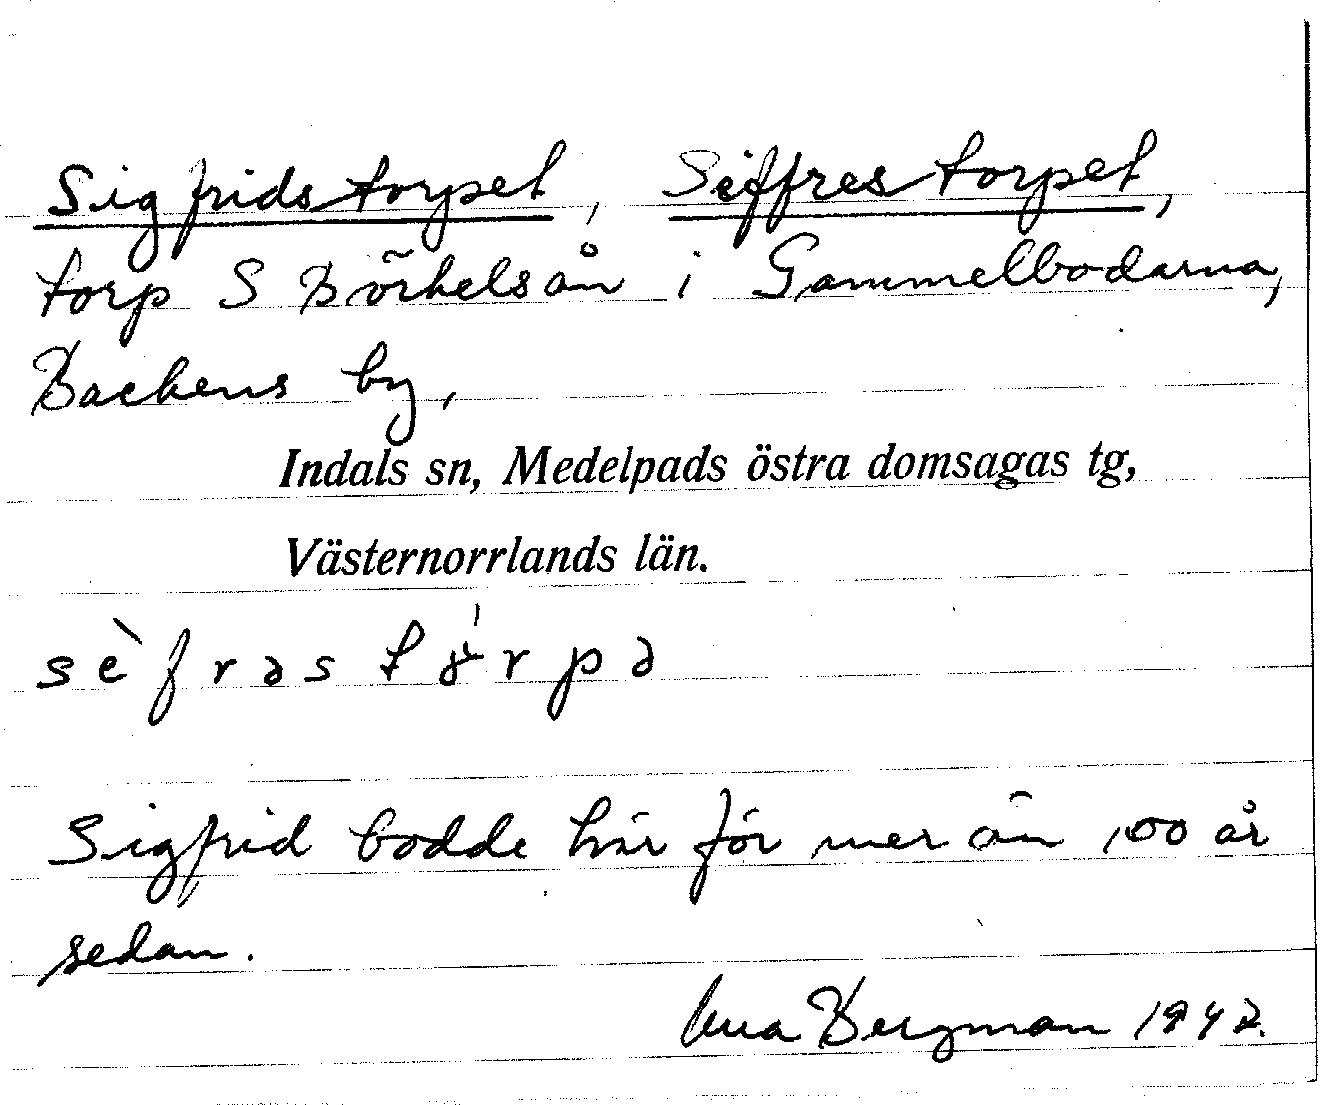 Sigfridstorpet, Seffrestorpet,
torp S Börkelsån i Gammelbodarna,
Backens by,
Indals sn, Medelpads östra domsagas tg,
Västernorrlands län.
sèfrəs tɤ́rpə
Sigfrid bodde här för mer än 100 år
sedan.
Bergman 1942.